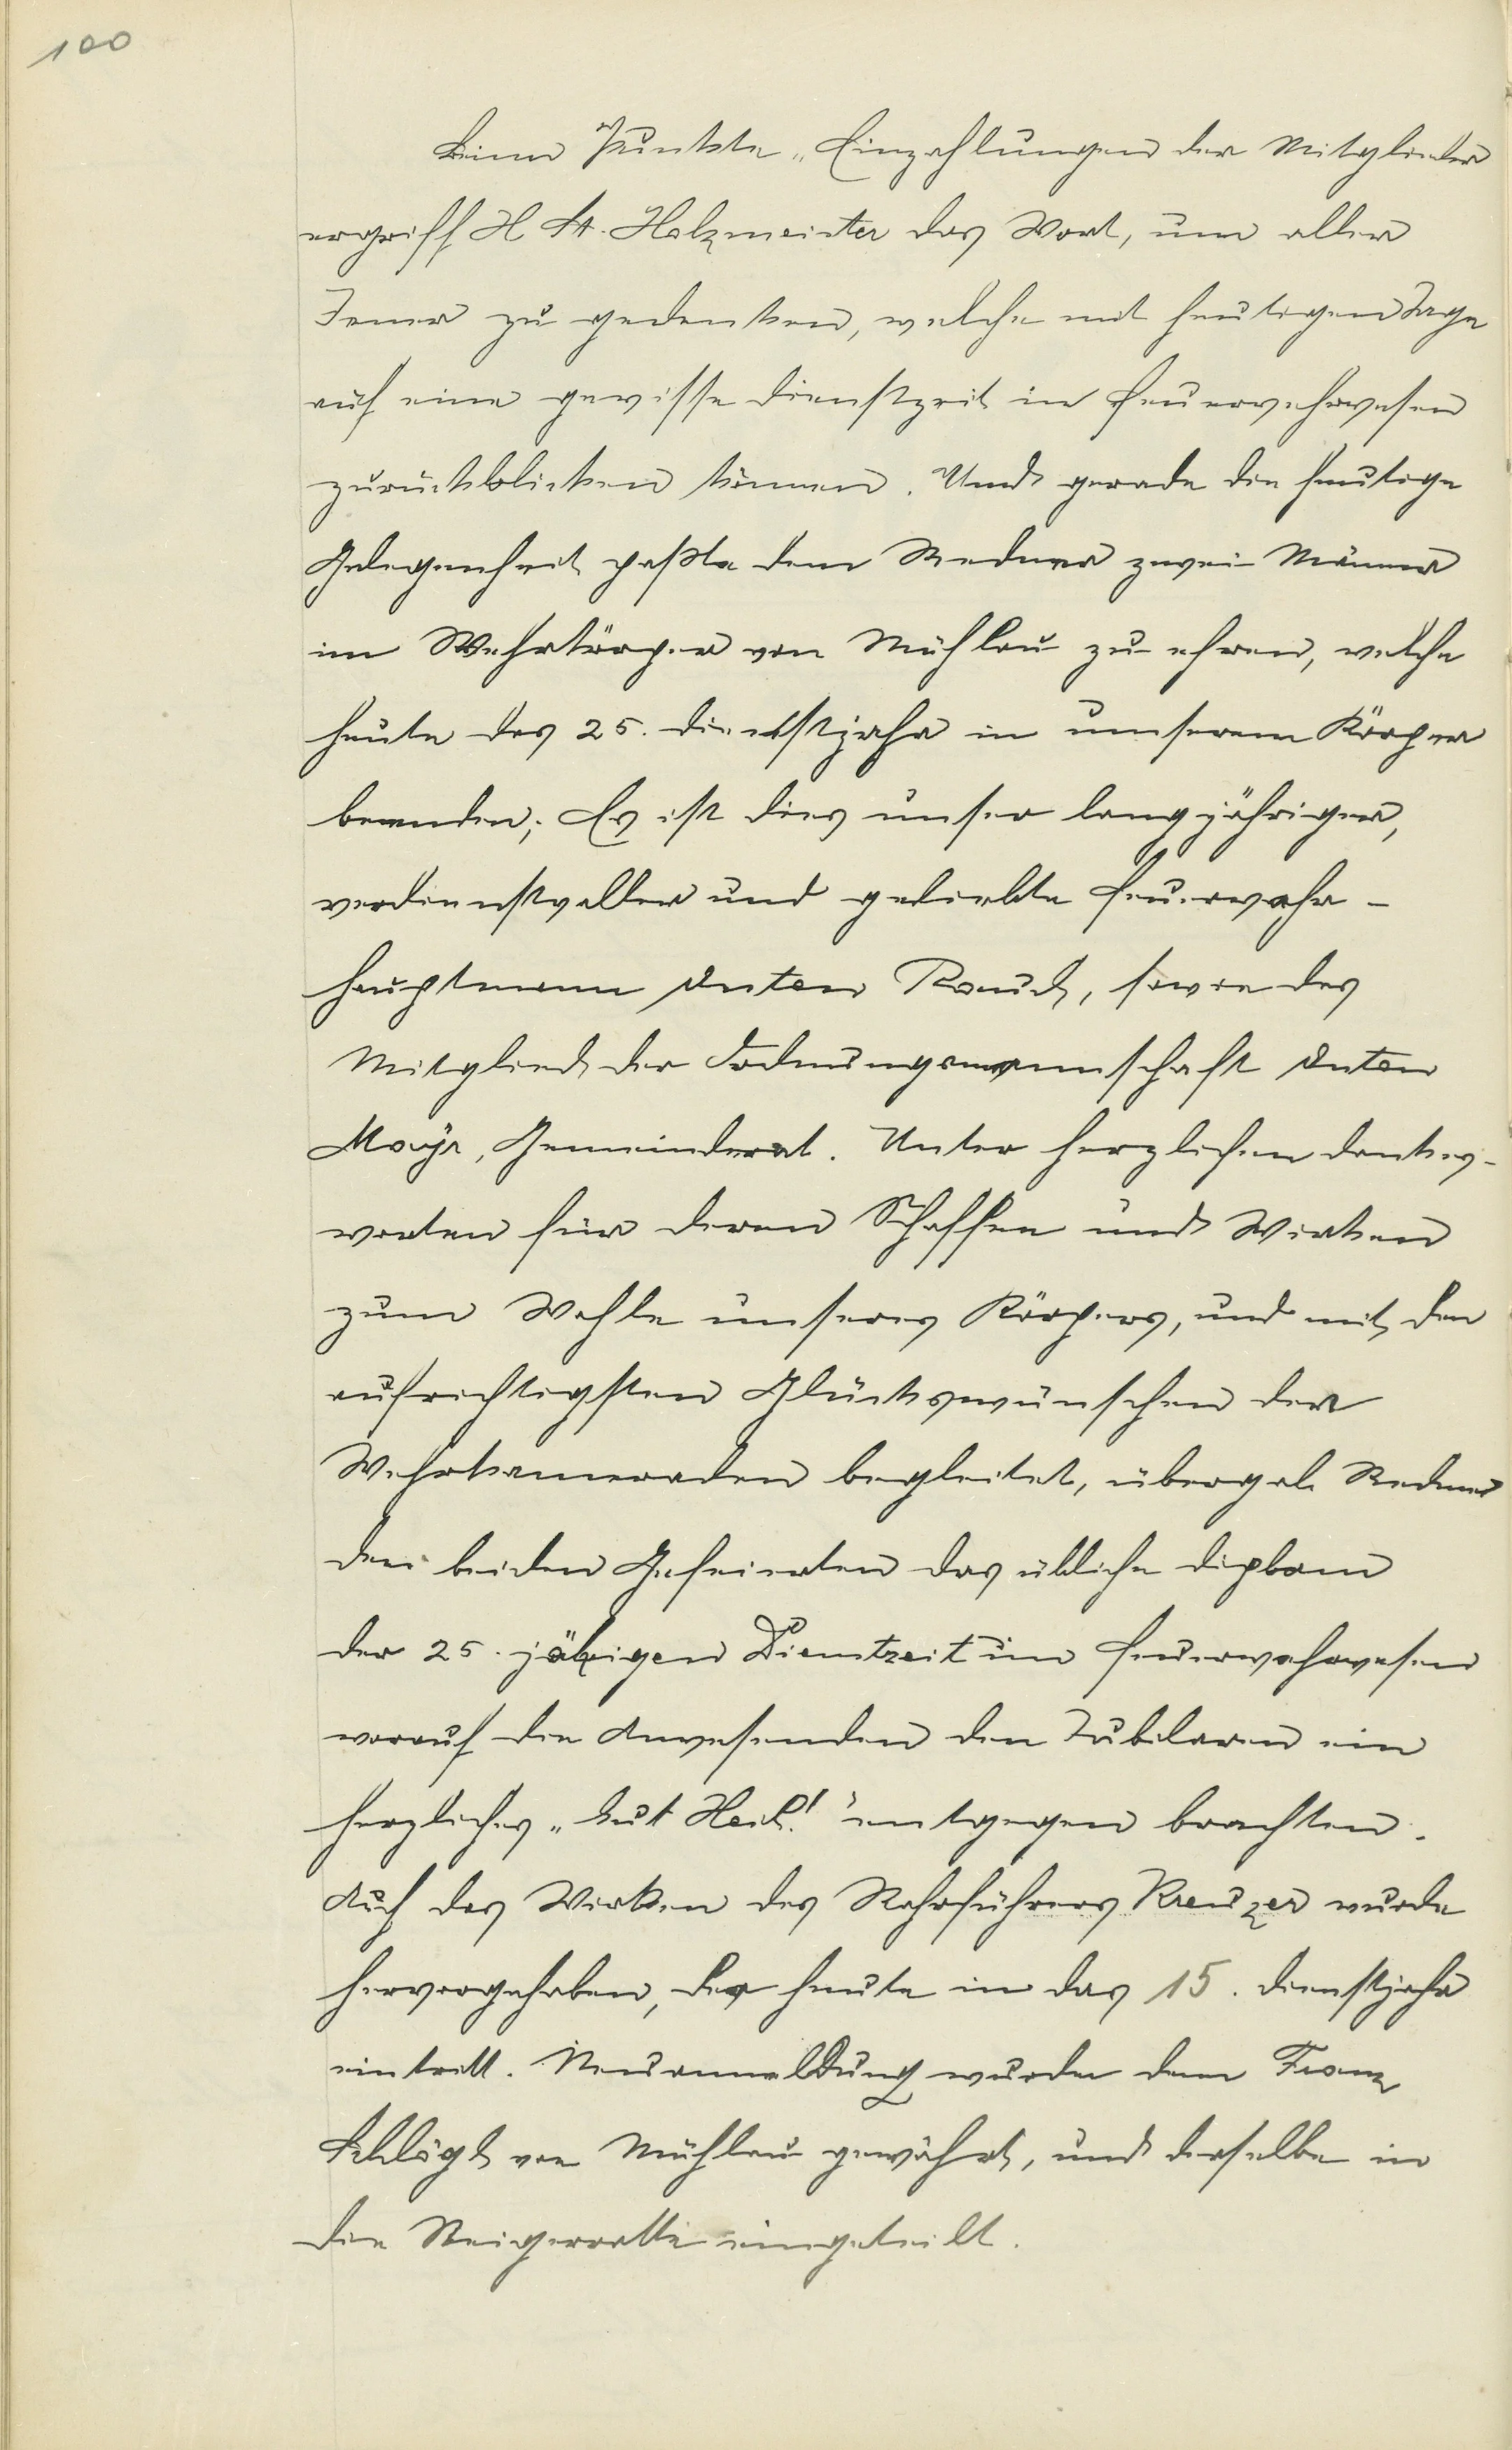 100
Beim Punkte „Einzahlungen der Mitglieder
ergriff H St. Holzmeister das Wort, um aller
Jener zu gedenken, welche mit heutigen Tage
auf eine gewisse Dienstzeit im Feuerwehrwesen
zurückblicken können. Und gerade die heutige
Gelegenheit paßte dem Redner zwei Männer
im Wehrkörper von Mühlau zu ehren, welche
heute das 25. Dienstjahr in unserem Körper
beenden; Es ist dies unser langjähriger,
verdienstvoller und geliebte Feuerwehr-
hauptmann Anton Rauch, sowie das
Mitglied der Ordnungsmannschaft Anton
Mayr, Gemeinderat. Unter herzlichen Dankes-
worten für deren Schaffen und Wirken
zum Wohle unseres Körpers, und mit den
aufrichtigsten Glückswünschen der
Wehrkameraden begleitet, übergab Redner
den beiden Gefeierten das übliche Diplom
der 25. jährigen Dienstzeit im Feuerwehrwesen
worauf die Anwesenden den Jubilaren ein
herzliches „Gut Heil!" entgegen brachten.
Auch das Wirken des Rohrführers Kreuzer wurde
hervorgehoben, der heute in das 15. Dienstjahr
eintritt. Neuanmeldung wurde dem Franz
von Mühlau gewährt, und derselbe in
die Steigerrotte eingeteilt.